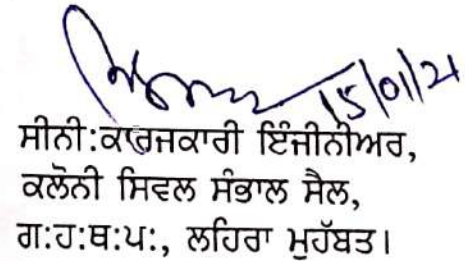 15/01/21
ਸੀਨੀ:ਕਾਰਜਕਾਰੀ ਇੰਜੀਨੀਅਰ,
ਕਲੋਨੀ ਸਿਵਲ ਸੰਭਾਲ ਸੈਲ,
ਗ:ਹ:ਥ:ਪ:, ਲਹਿਰਾ ਮੁਹੱਬਤ।